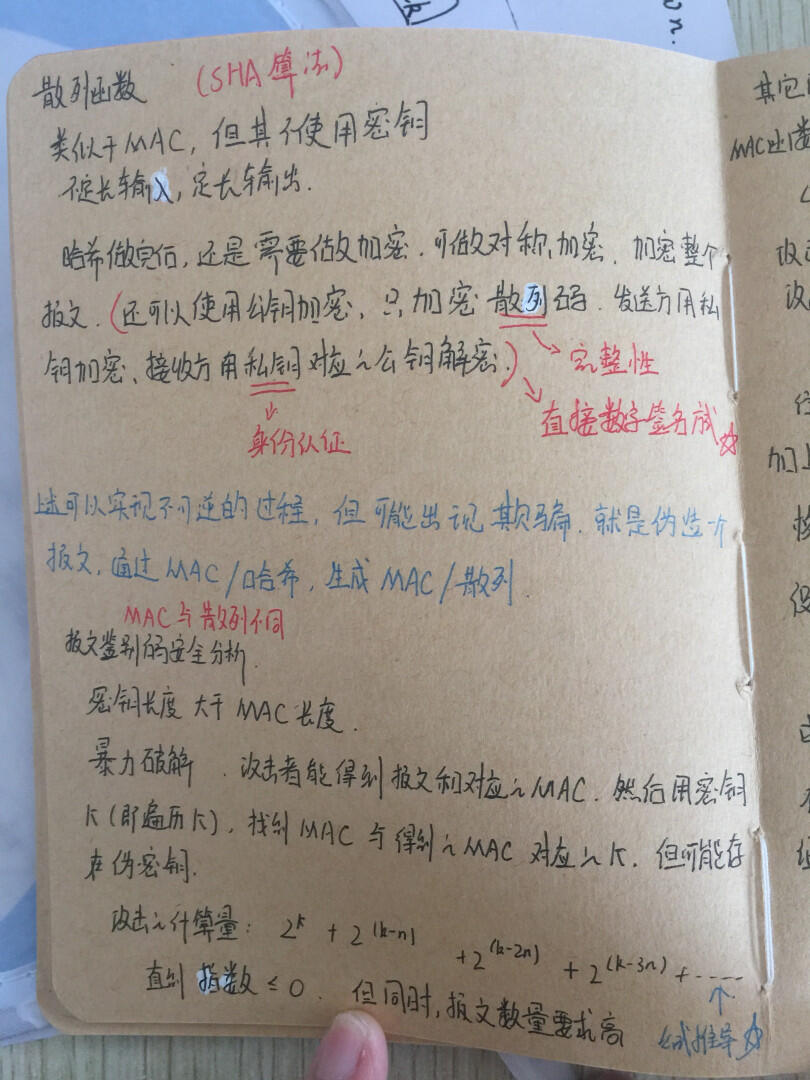 散列函数 (SHA算法)
类似于MAC，但其不使用密钥
不定长输入，定长输出.
哈希做完后，还是需要做加密. 可做对称加密. 加密整个
报文. (还可以使用公钥加密，只加密散列码. 发送方用私
钥加密、接收方用私钥对应之公钥解密.)
完整性
直接数字签名方式☆
身份认证
上述可以实现不可逆的过程，但可能出现欺骗. 就是伪造一个
报文，通过MAC/哈希，生成MAC/散列
MAC与散列不同
报文鉴别码安全分析.
密钥长度大于MAC长度.
暴力破解. 攻击者能得到报文和对应之MAC. 然后用密钥
K(即遍历K), 找到MAC与得到之MAC对应之K. 但可能存
在伪密钥.
攻击之计算量: 2^k + 2^(k-n) + 2^(k-2n) + 2^(k-3n) + ......
直到指数 ≤ 0. 但同时，报文数量要求高
公式推导☆
其它
MAC
加上